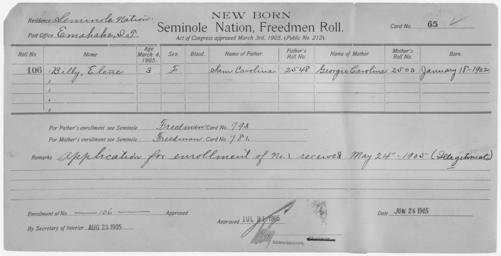 NEW BORN
Residence Seminole Nation.
Seminole Nation, Freedmen Roll.
Card No. 65
Post Office Emahaka, I.T.
Act of Congress approved March 3rd, 1905, (Public No. 212).
Roll No. Name Age March 4, 1905. Sex. Blood. Name of Father. Father's Roll No. Name of Mother. Mother's Roll No. Born.
106 Billy, Elsie 3 F Sam Carolina 2548 Georgie Carolina 2503 January 18-1902
For Father's enrollment see Seminole Freedman Card No. 793
For Mother's enrollment see Seminole Freedman Card No. 781
Remarks Application for enrollment of No. 1 received May 24-1905 (Illegitimate)
Enrollment of No. 106 Approved
Approved
Date JUN 26 1905
By Secretary of Interior AUG 23 1905
COMMISSIONER.